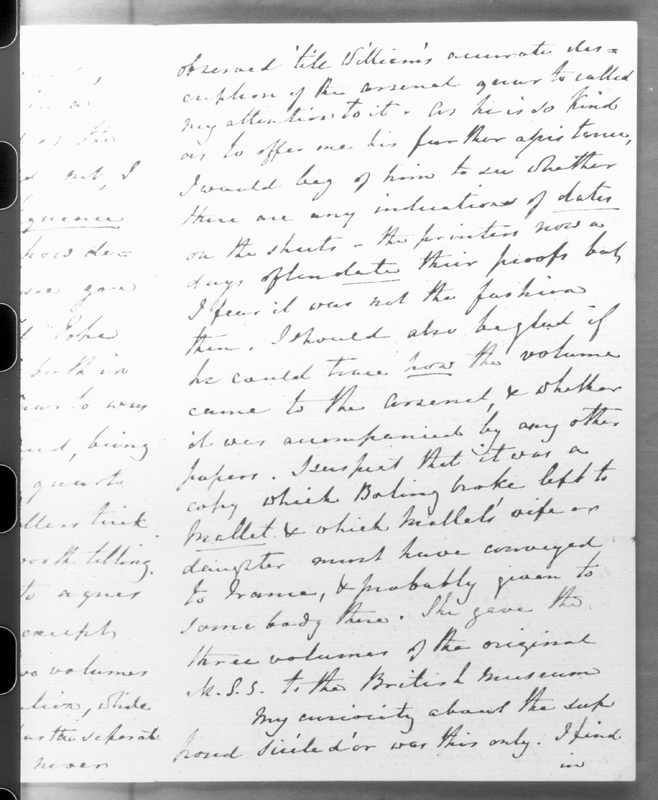 observed 'till William's accurate des=
cription of the arsenal quarto called
my attention to it. As he is so kind
as to offer me his further assistance,
I would beg of him to see whether
there are any indications of dates
on the sheets - the printers now a
days often date their proofs but
I fear it was not the fashion
then. I should also be glad if
he could trace how the volume
came to the arsenal, & whether
it was accompanied by any other
papers. I suspect that it was a
copy which Bolingbroke left to
Mallet & which Mallet's wife or
daughter must have conveyed
to France, & probably given to
some body there. She gave the
three volumes of the original
M.S.S. to the British Museum
My curiosity about the sup
posed Siècle d'or was this only. I find
in
not, I
how de=
see gave
Pope
both in
was
and, being
quarto
think
worth telling.
to agree
except
volumes
while
the separate
never